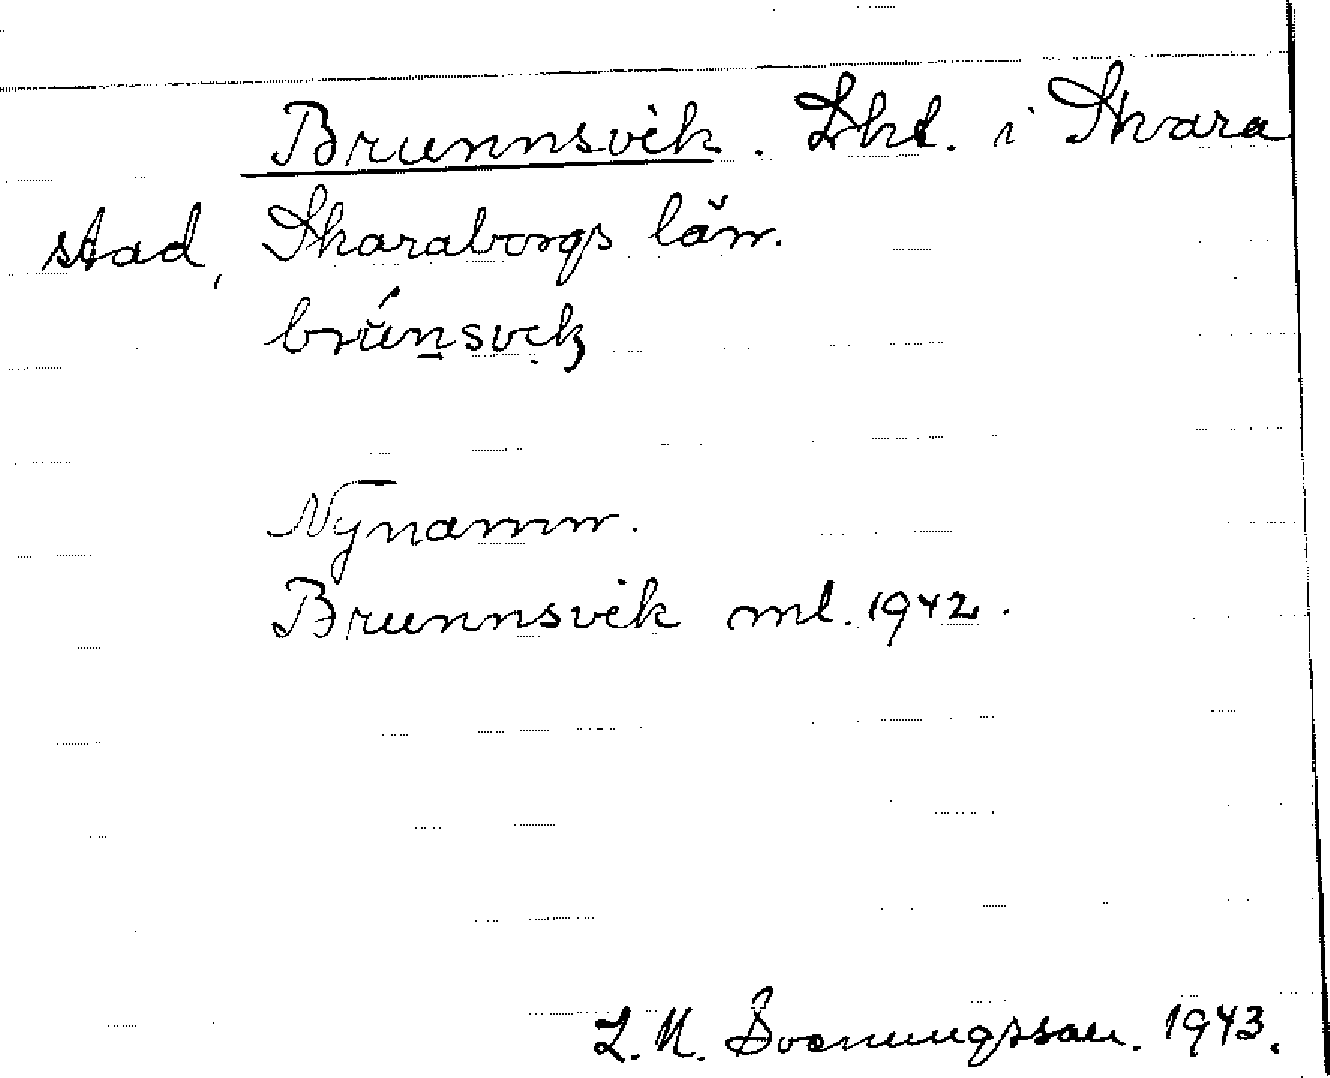 Brunnsvik. Lht. i Skara
stad, Skaraborgs län.
brúnsvik
Nynamn.
Brunnsvik ml. 1942.
L. N. Svenungsson. 1943.